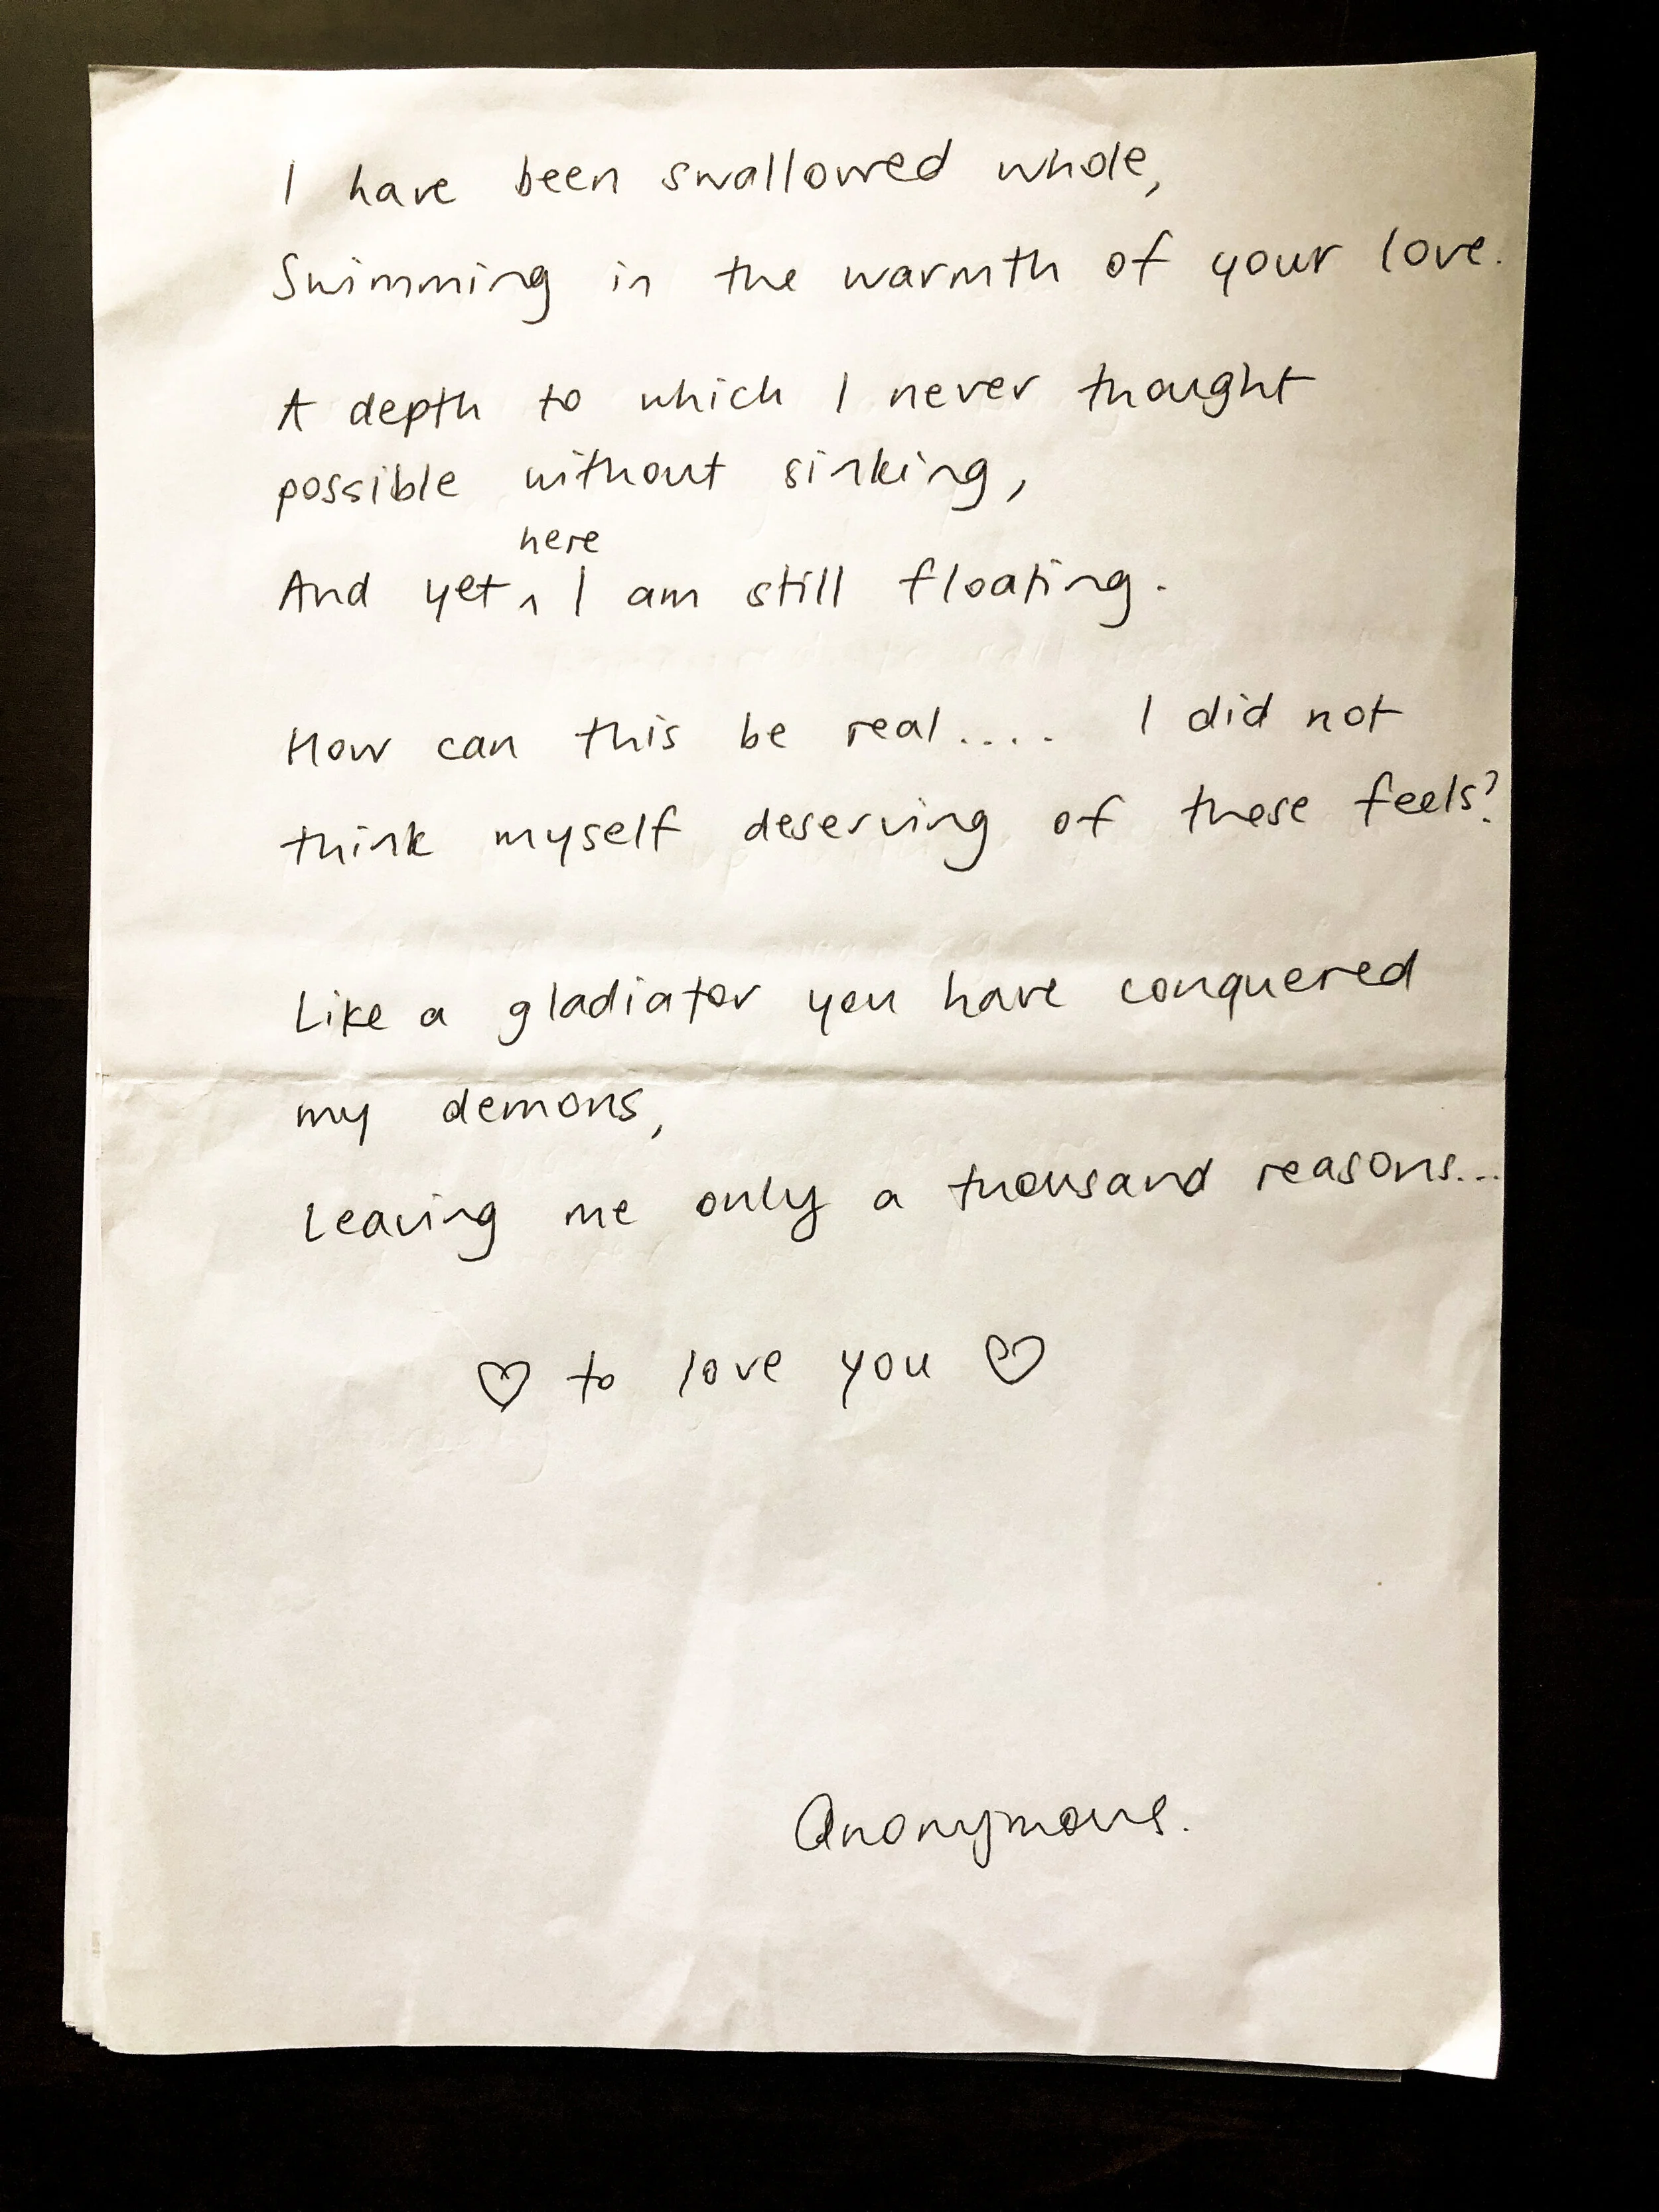 I have been swallowed whole,
Swimming in the warmth of your love.
A depth to which I never thought
possible without sinking,
here
And yet ^ I am still floating.
How can this be real.... I did not
think myself deserving of these feels?
Like a gladiator you have conquered
my demons,
Leaving me only a thousand reasons...
♡ to love you ♡
Anonymous.